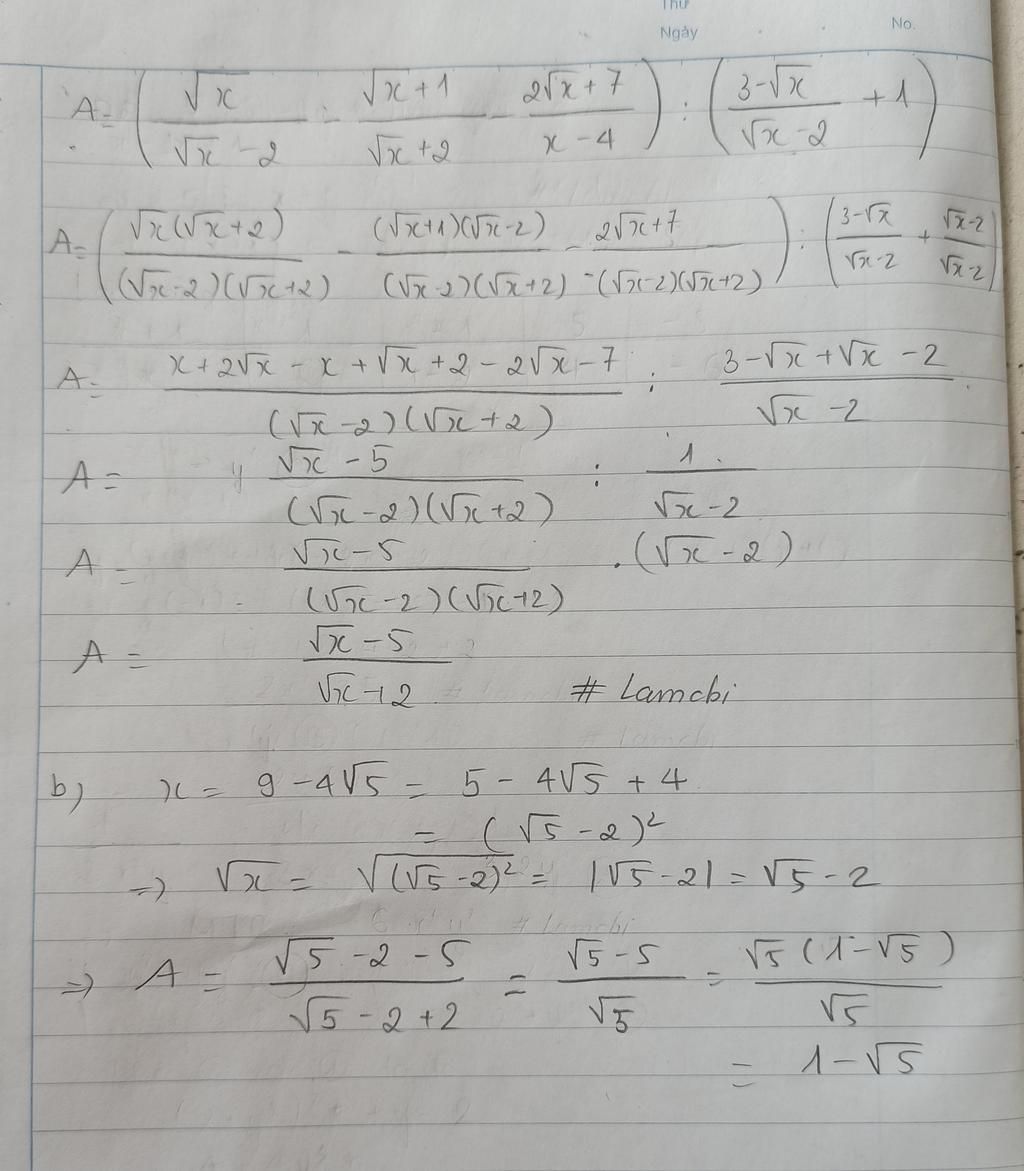 Thứ
Ngày No.
A = (√x/(√x - 2) - (√x + 1)/(√x + 2) - (2√x + 7)/(x - 4)) : ((3 - √x)/(√x - 2) + 1)
A = (√x(√x + 2)/((√x - 2)(√x + 2)) - (√x + 1)(√x - 2)/((√x - 2)(√x + 2)) - (2√x + 7)/((√x - 2)(√x + 2))) : ((3 - √x)/(√x - 2) + (√x - 2)/(√x - 2))
A = (x + 2√x - x + √x + 2 - 2√x - 7)/((√x - 2)(√x + 2)) : (3 - √x + √x - 2)/(√x - 2)
A = (√x - 5)/((√x - 2)(√x + 2)) : 1/(√x - 2)
A = (√x - 5)/((√x - 2)(√x + 2)) . (√x - 2)
A = (√x - 5)/(√x + 2) # Lamchi
b) x = 9 - 4√5 = 5 - 4√5 + 4
= (√5 - 2)²
=> √x = √((√5 - 2)²) = |√5 - 2| = √5 - 2
=> A = (√5 - 2 - 5)/(√5 - 2 + 2) = (√5 - 5)/√5 = √5(1 - √5)/√5
= 1 - √5